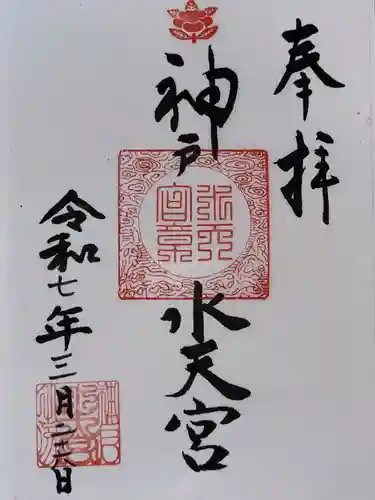 奉拝
神戸
水天宮
令和七年三月二十六日